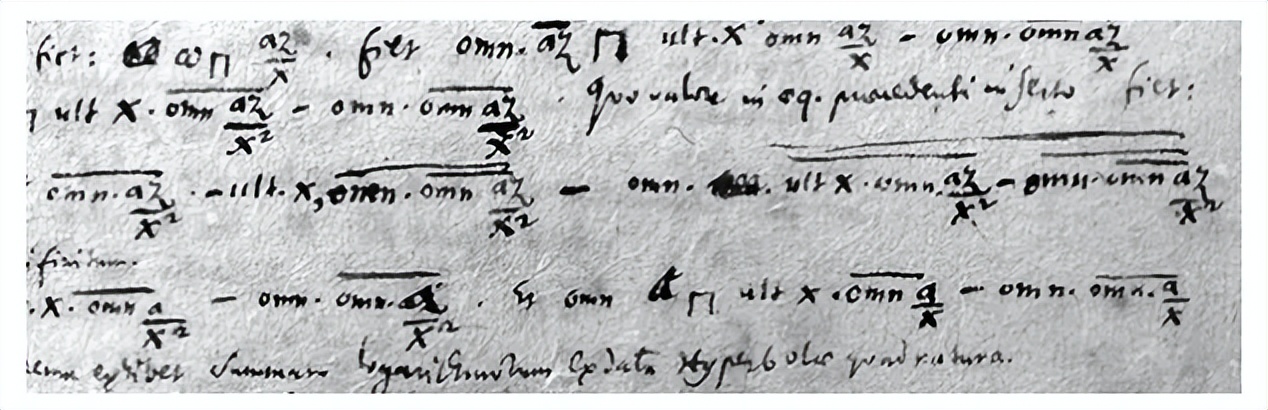 fiet: ω ⊓ az/x · fiet omn. az ⊓ ult. x omn az/x − omn. omn az/x
ult x. omn az/x² − omn. omn az/x² . Quo valore in eq. praecedenti inserto fiet:
omn. az/x² . − ult. x, omn. omn az/x² − omn. ult x. omn. az/x² − omn. omn az/x²
x. omn a/x² − omn. omn. a/x² . Et omn a ⊓ ult x. omn a/x − omn. omn. a/x
exhibet summam logarithmorum ex data Hyperbolae quadratura.